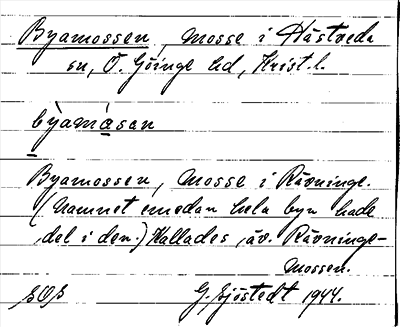 Byamossen, mosse i Hästveda
sn, Ö. Göinge hd, Krist. l.
bỳamàsan
Byamossen, mosse i Rävninge.
(Namnet emedan hela byn hade
del i den.) Kallades, äv. Rävninge-
mossen.
G. Sjöstedt 1944.